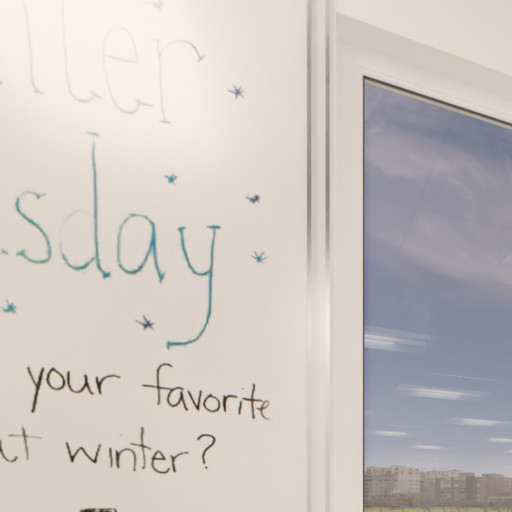 sday
your favorite
winter?